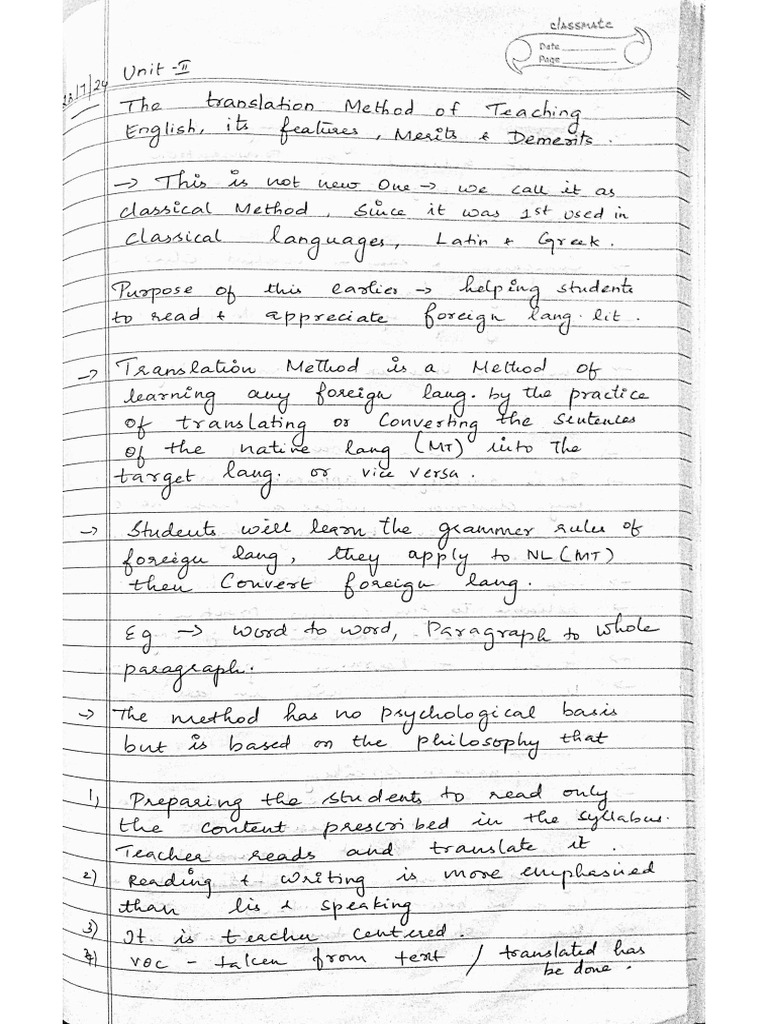 classmate
Date
Page
Unit - II
23/7/24
The translation Method of Teaching
English, its features, Merits & Demerits.
→ This is not new one → we call it as
classical Method, since it was 1st used in
classical languages, Latin & Greek.
Purpose of this earlier → helping students
to read & appreciate foreign lang. lit.
→ Translation Method is a Method of
learning any foreign lang. by the practice
of translating or converting the sentences
of the native lang (MT) into the
target lang. or vice versa.
→ Students will learn the grammer rules of
foreign lang, they apply to NL (MT)
then convert foreign lang.
Eg → word to word, Paragraph to whole
paragraph.
→ The method has no psychological basis
but is based on the philosophy that
1) Preparing the students to read only
the content prescribed in the syllabus.
Teacher reads and translate it.
2) Reading & writing is more emphasized
than lis & speaking
3) It is teacher centered.
4) voc - taken from text / translated has
be done.